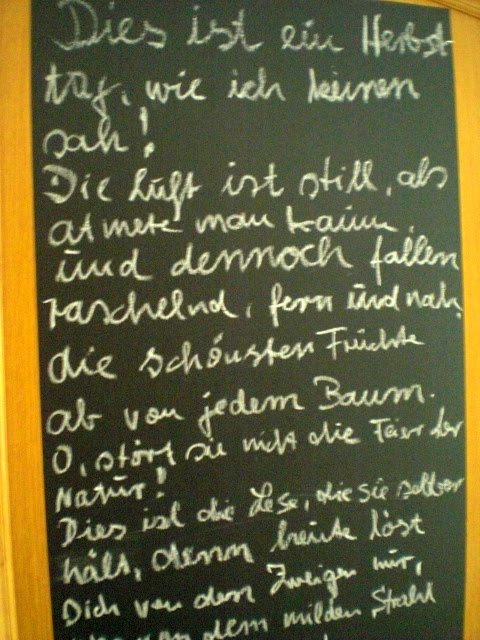 Dies ist ein Herbst
tag, wie ich keinen
sah!
Die Luft ist still, als
atmete man kaum,
und dennoch fallen
raschelnd, fern und nah,
die schönsten Früchte
ab von jedem Baum.
O, stört sie nicht die Feier der
Natur!
Dies ist die Lese, die sie selber
hält, denn heute löst
Dich von den Zweigen nur,
von dem milden Strahl